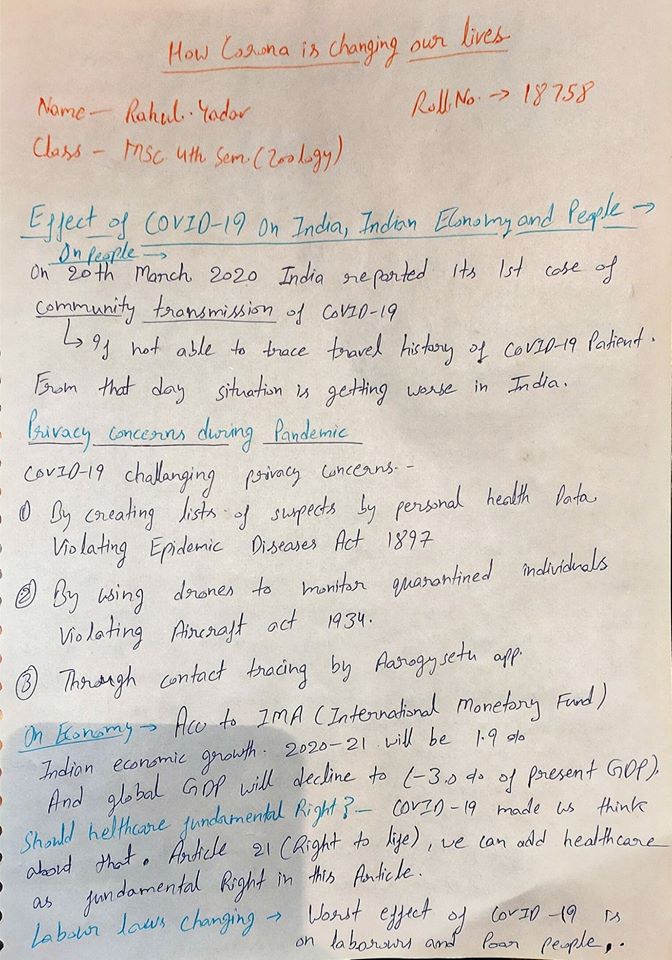 How Corona is changing our lives
Name – Rahul Yadav
Roll No. → 18758
Class – MSc 4th Sem. (Zoology)
Effect of COVID-19 On India, Indian Economy and People →
On people →
On 20th March 2020 India reported its 1st case of
community transmission of COVID-19
↳ If not able to trace travel history of COVID-19 Patient.
From that day situation is getting worse in India.
Privacy concerns during Pandemic
COVID-19 challanging privacy concerns. -
① By creating lists of suspects by personal health Data
Violating Epidemic Diseases Act 1897
② By using drones to monitor quarantined individuals
Violating Aircraft act 1934.
③ Through contact tracing by Aarogysetu app.
On Economy → Acc to IMA (International Monetary Fund)
Indian economic growth 2020-21 will be 1.9 %
And global GDP will decline to (-3.0 % of present GDP).
Should helthcare fundamental Right? – COVID-19 made us think
about that. Article 21 (Right to life), we can add healthcare
as fundamental Right in this Article.
Labour laws changing → Worst effect of COVID-19 is
on labarours and Poor people,.